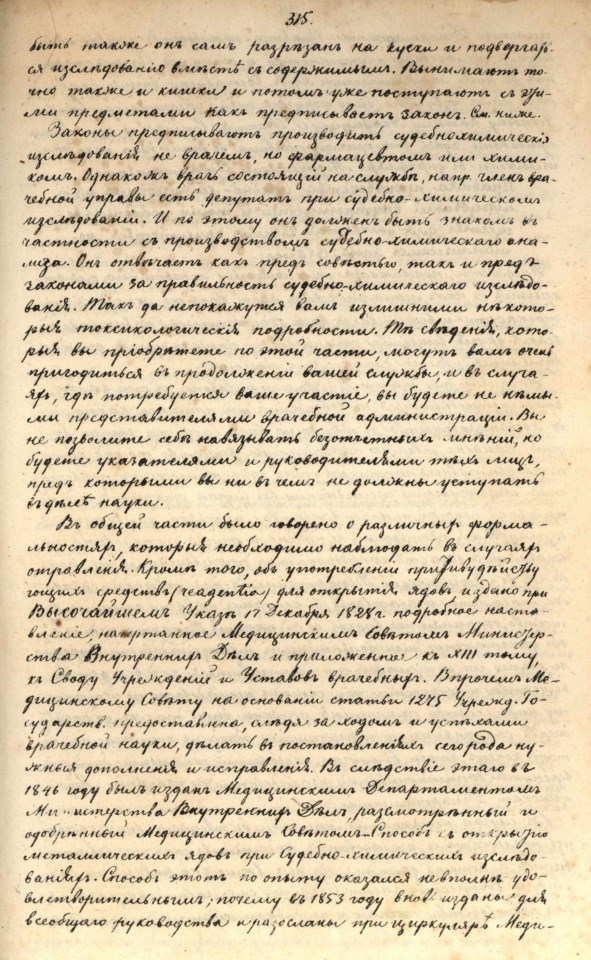 315.
быть также онъ самъ разрѣзанъ на куски и подвергает-
ся изслѣдованію вмѣстѣ съ содержимымъ. Вынимаютъ то-
чно также и кишки и потомъ уже поступаютъ съ эти-
ми предметами какъ предписываетъ законъ. См. ниже.
Законы предписываютъ производить судебнохимическія
изслѣдованія не врачемъ, но фармацевтомъ или хими-
комъ. Однакожъ врачъ состоящій на службѣ, напр. членъ вра-
чебной управы есть депутатъ при судебно-химическомъ
изслѣдованіи. И по этому онъ долженъ быть знакомъ въ
частности съ производствомъ судебно-химическаго ана-
лиза. Онъ отвѣчаетъ какъ предъ совѣстью, такъ и предъ
законами за правильность судебно-химическаго изслѣдо-
ванія. Такъ да непокажутся вамъ излишними нѣкото-
рыя токсикологическія подробности. Тѣ свѣденія, кото-
рыя вы пріобрѣтете по этой части, могутъ вамъ очень
пригодиться въ продолженіи вашей службы, и въ случа-
яхъ, гдѣ потребуется ваше участіе, вы будете не нѣмы-
ми представителями врачебной администраціи. Вы
не позволите себѣ навязывать безотчетныхъ мнѣній, но
будете указателями и руководителями тѣхъ лицъ,
предъ которыми вы ни въ чемъ не должны уступать
въ дѣлѣ науки.
Въ общей части было говорено о различныхъ форма-
льностяхъ, которыя необходимо наблюдать въ случаяхъ
отравленія. Кромѣ того, объ употребленіи противудѣйству
ющихъ средствъ (reagentia) для открытія ядовъ, издано при
Высочайшемъ Указѣ 17 Декабря 1828 г. подробное наста-
вленіе, начертанное Медицинскимъ Совѣтомъ Министер-
ства Внутреннихъ Дѣлъ и приложенное къ XIII тому,
къ Своду Учрежденій и Уставовъ врачебныхъ. Впрочемъ Ме-
дицинскому Совѣту на основаніи статьи 1275 Учрежд. Го-
сударств. предоставлена, слѣдя за ходомъ и успѣхами
врачебной науки, дѣлать въ постановленіяхъ сего рода ну-
жныя дополненія и исправленія. Въ слѣдствіе этаго въ
1846 году былъ изданъ Медицинскимъ Департаментомъ
Министерства Внутреннихъ Дѣлъ, разсмотрѣнный и
одобрѣнный Медицинскимъ Совѣтомъ—Способъ къ открытію
металлическихъ ядовъ при Судебно-химическихъ изслѣдо-
ваніяхъ. Способъ этотъ по опыту оказался невполнѣ удо-
влетворительнымъ; почему въ 1853 году вновь изданы для
всеобщаго руководства и разосланы при циркулярѣ Меди-